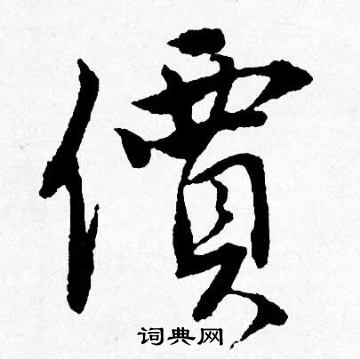 價
词典网